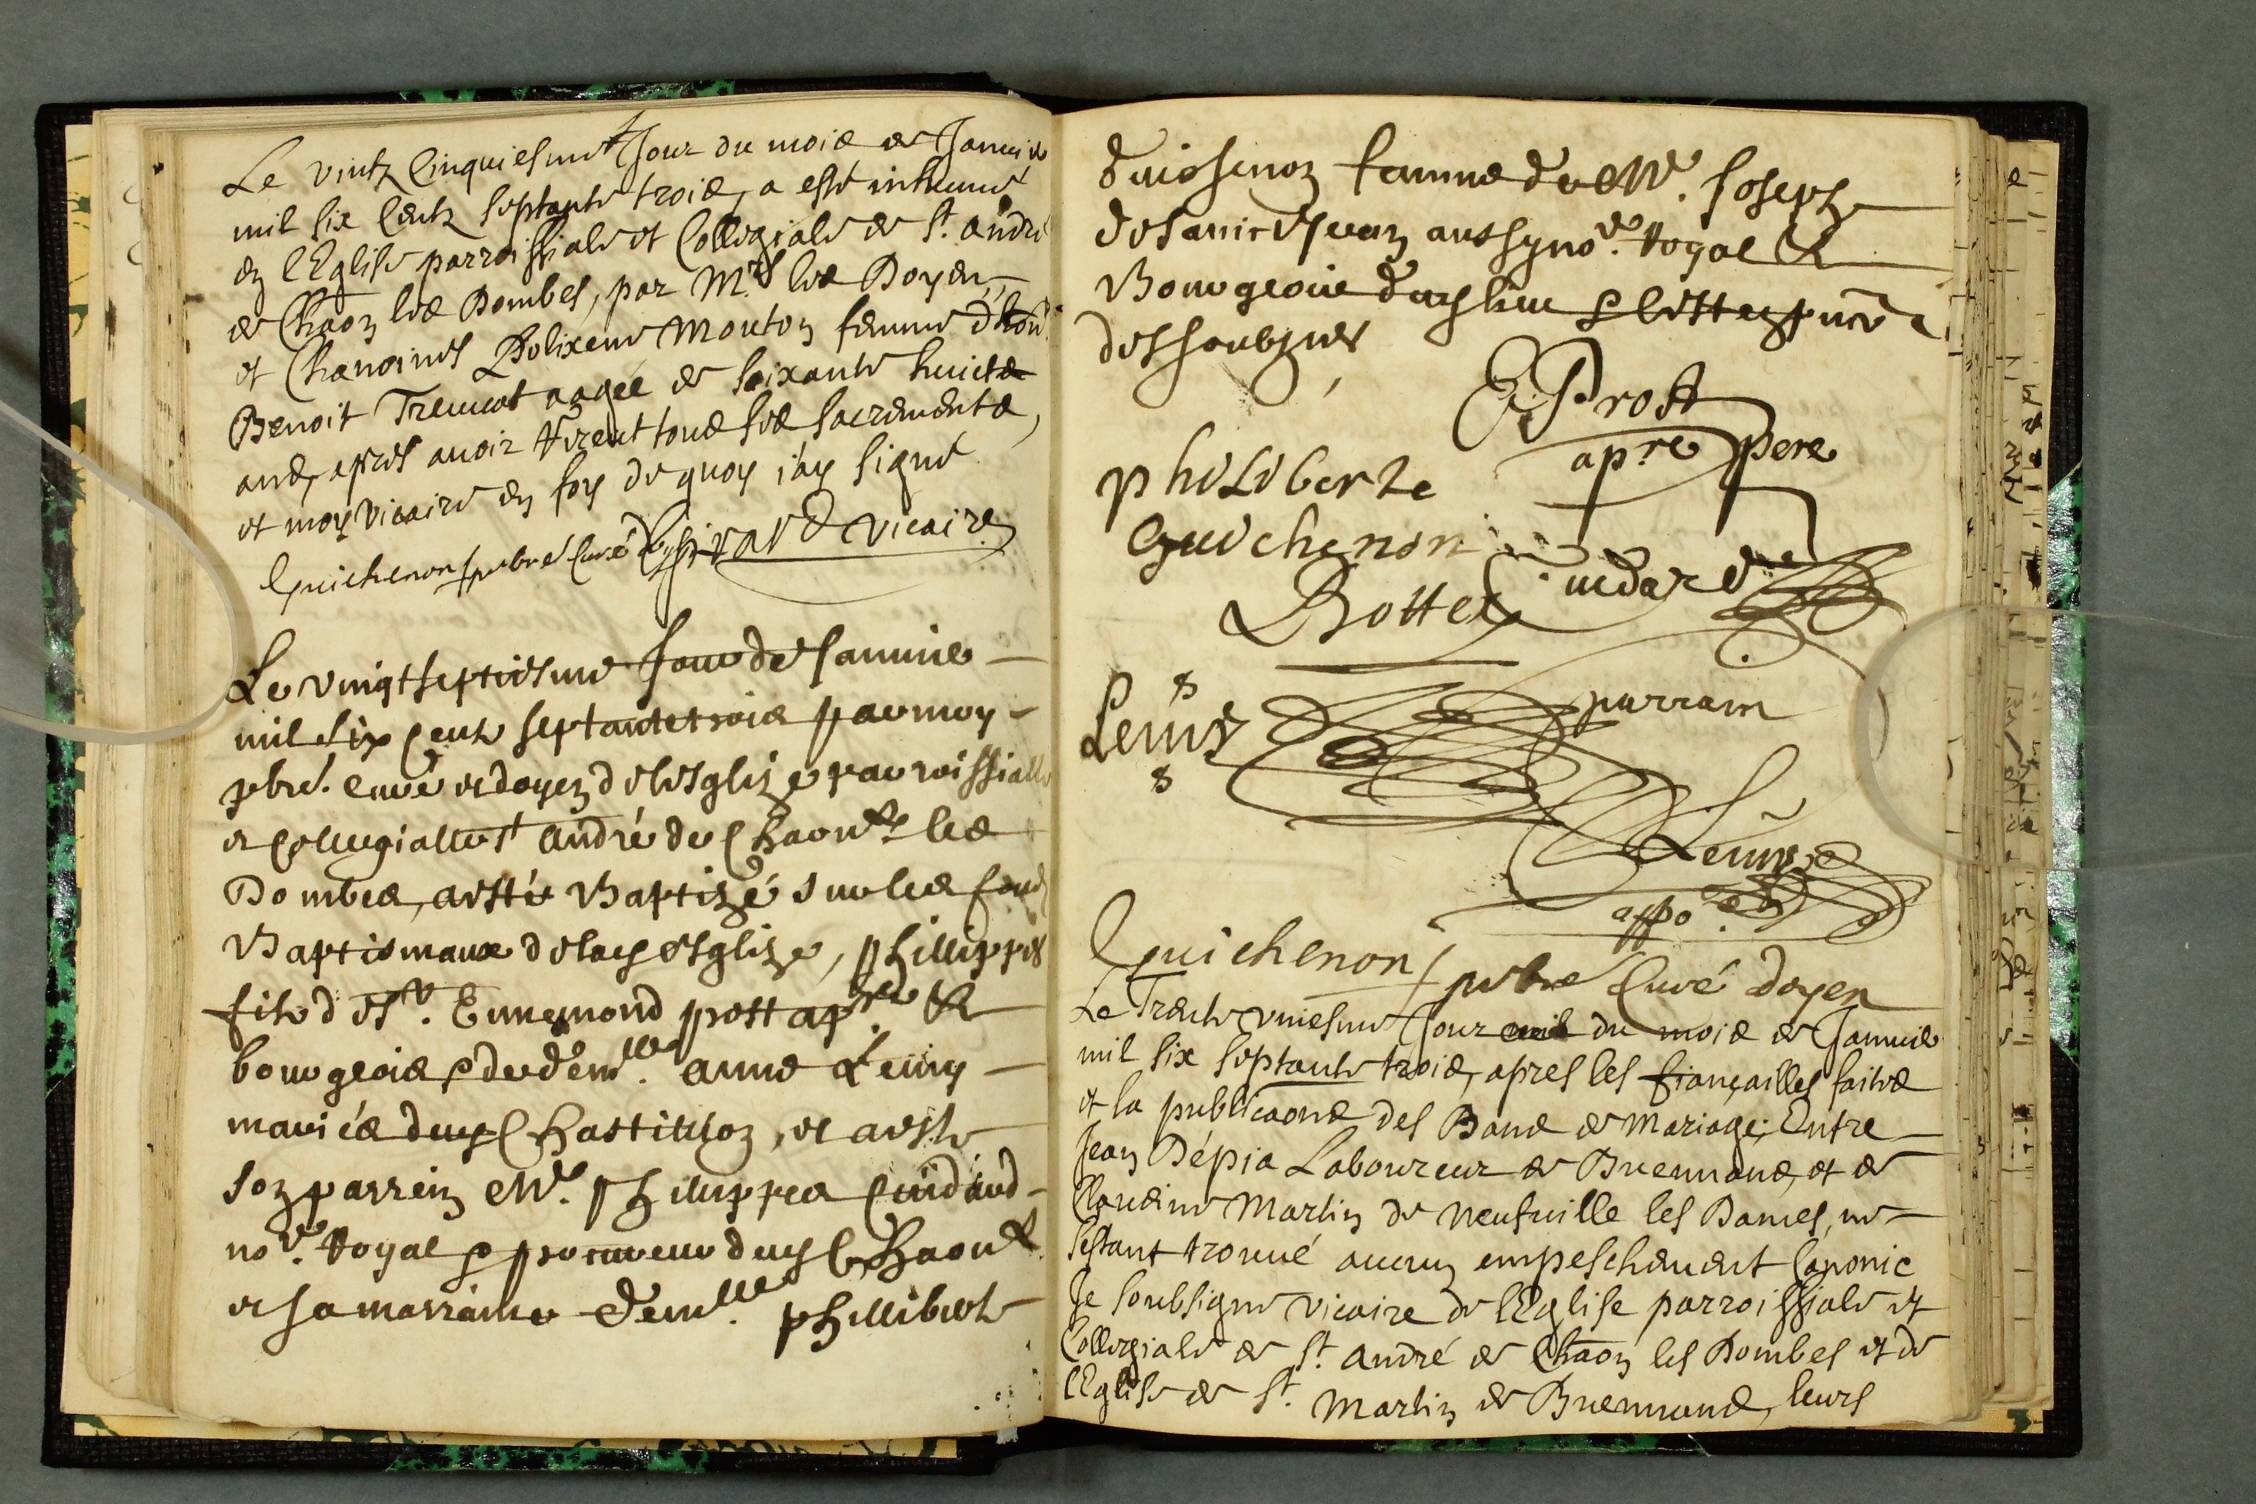 Le vintz cinquiesme Jour du mois de Januie
mil six centz septante trois, a esté inhumé
en l'Eglise parroissiale et Collegiale de St. André
de Chaon les Dombes, par Mrs les Doyen,
et Chanoines Polixene Mouton femme d'hon
Benoit Tremcot aagée de soixante huicts
ans, apres auoir receut tous ses sacrements,
et moy vicaire en foy de quoy i'ay signé
Guichenon pbre Curé Girard vicaire
Le vingt septiesme Jour de Januie
mil six cent septantetrois par moy
pbre. curé et doyen de lesglize parroissialle
et collegialle st André de Chaon les
Dombes, a esté Baptizé sur les fondz
Baptismaux de lad esglize, phillippes
filz de sr. Ennemond prost apre &
bourgeois & de demlle. anne Leüny
mariés dud Chastillon, et a esté
son parrein Mr. phillippes Cuidard
nore. Royal & procureur dud Chaon
et sa marraine demlle. phillibert
Guichenon famme de Mr. Joseph
aussy nore. Royal &
Bourgeois dud lieu
dessoubznés
E Prost
apre pere
philiberte
guichenon
Cuidard
Bottex
parrain
Leuny
Leuny
appo.re
Guichenon pbre Curé doyen
Le Trente vniesme Jour du mois de Januie
mil six septante trois, apres les fiançailles faites
et la publicaons des Bans de Mariage, Entre
Jean Dépia Laboureur de Buennans, et de
Claudine Martin de Neufuille les Dames, ne
sestant trouué aucun empeschement Canonic
Je soubsigne vicaire de l'Eglise parroissiale et
Collegiale de St. André de Chaon les Dombes et de
l'Eglise de St. Martin de Buennans, leurs